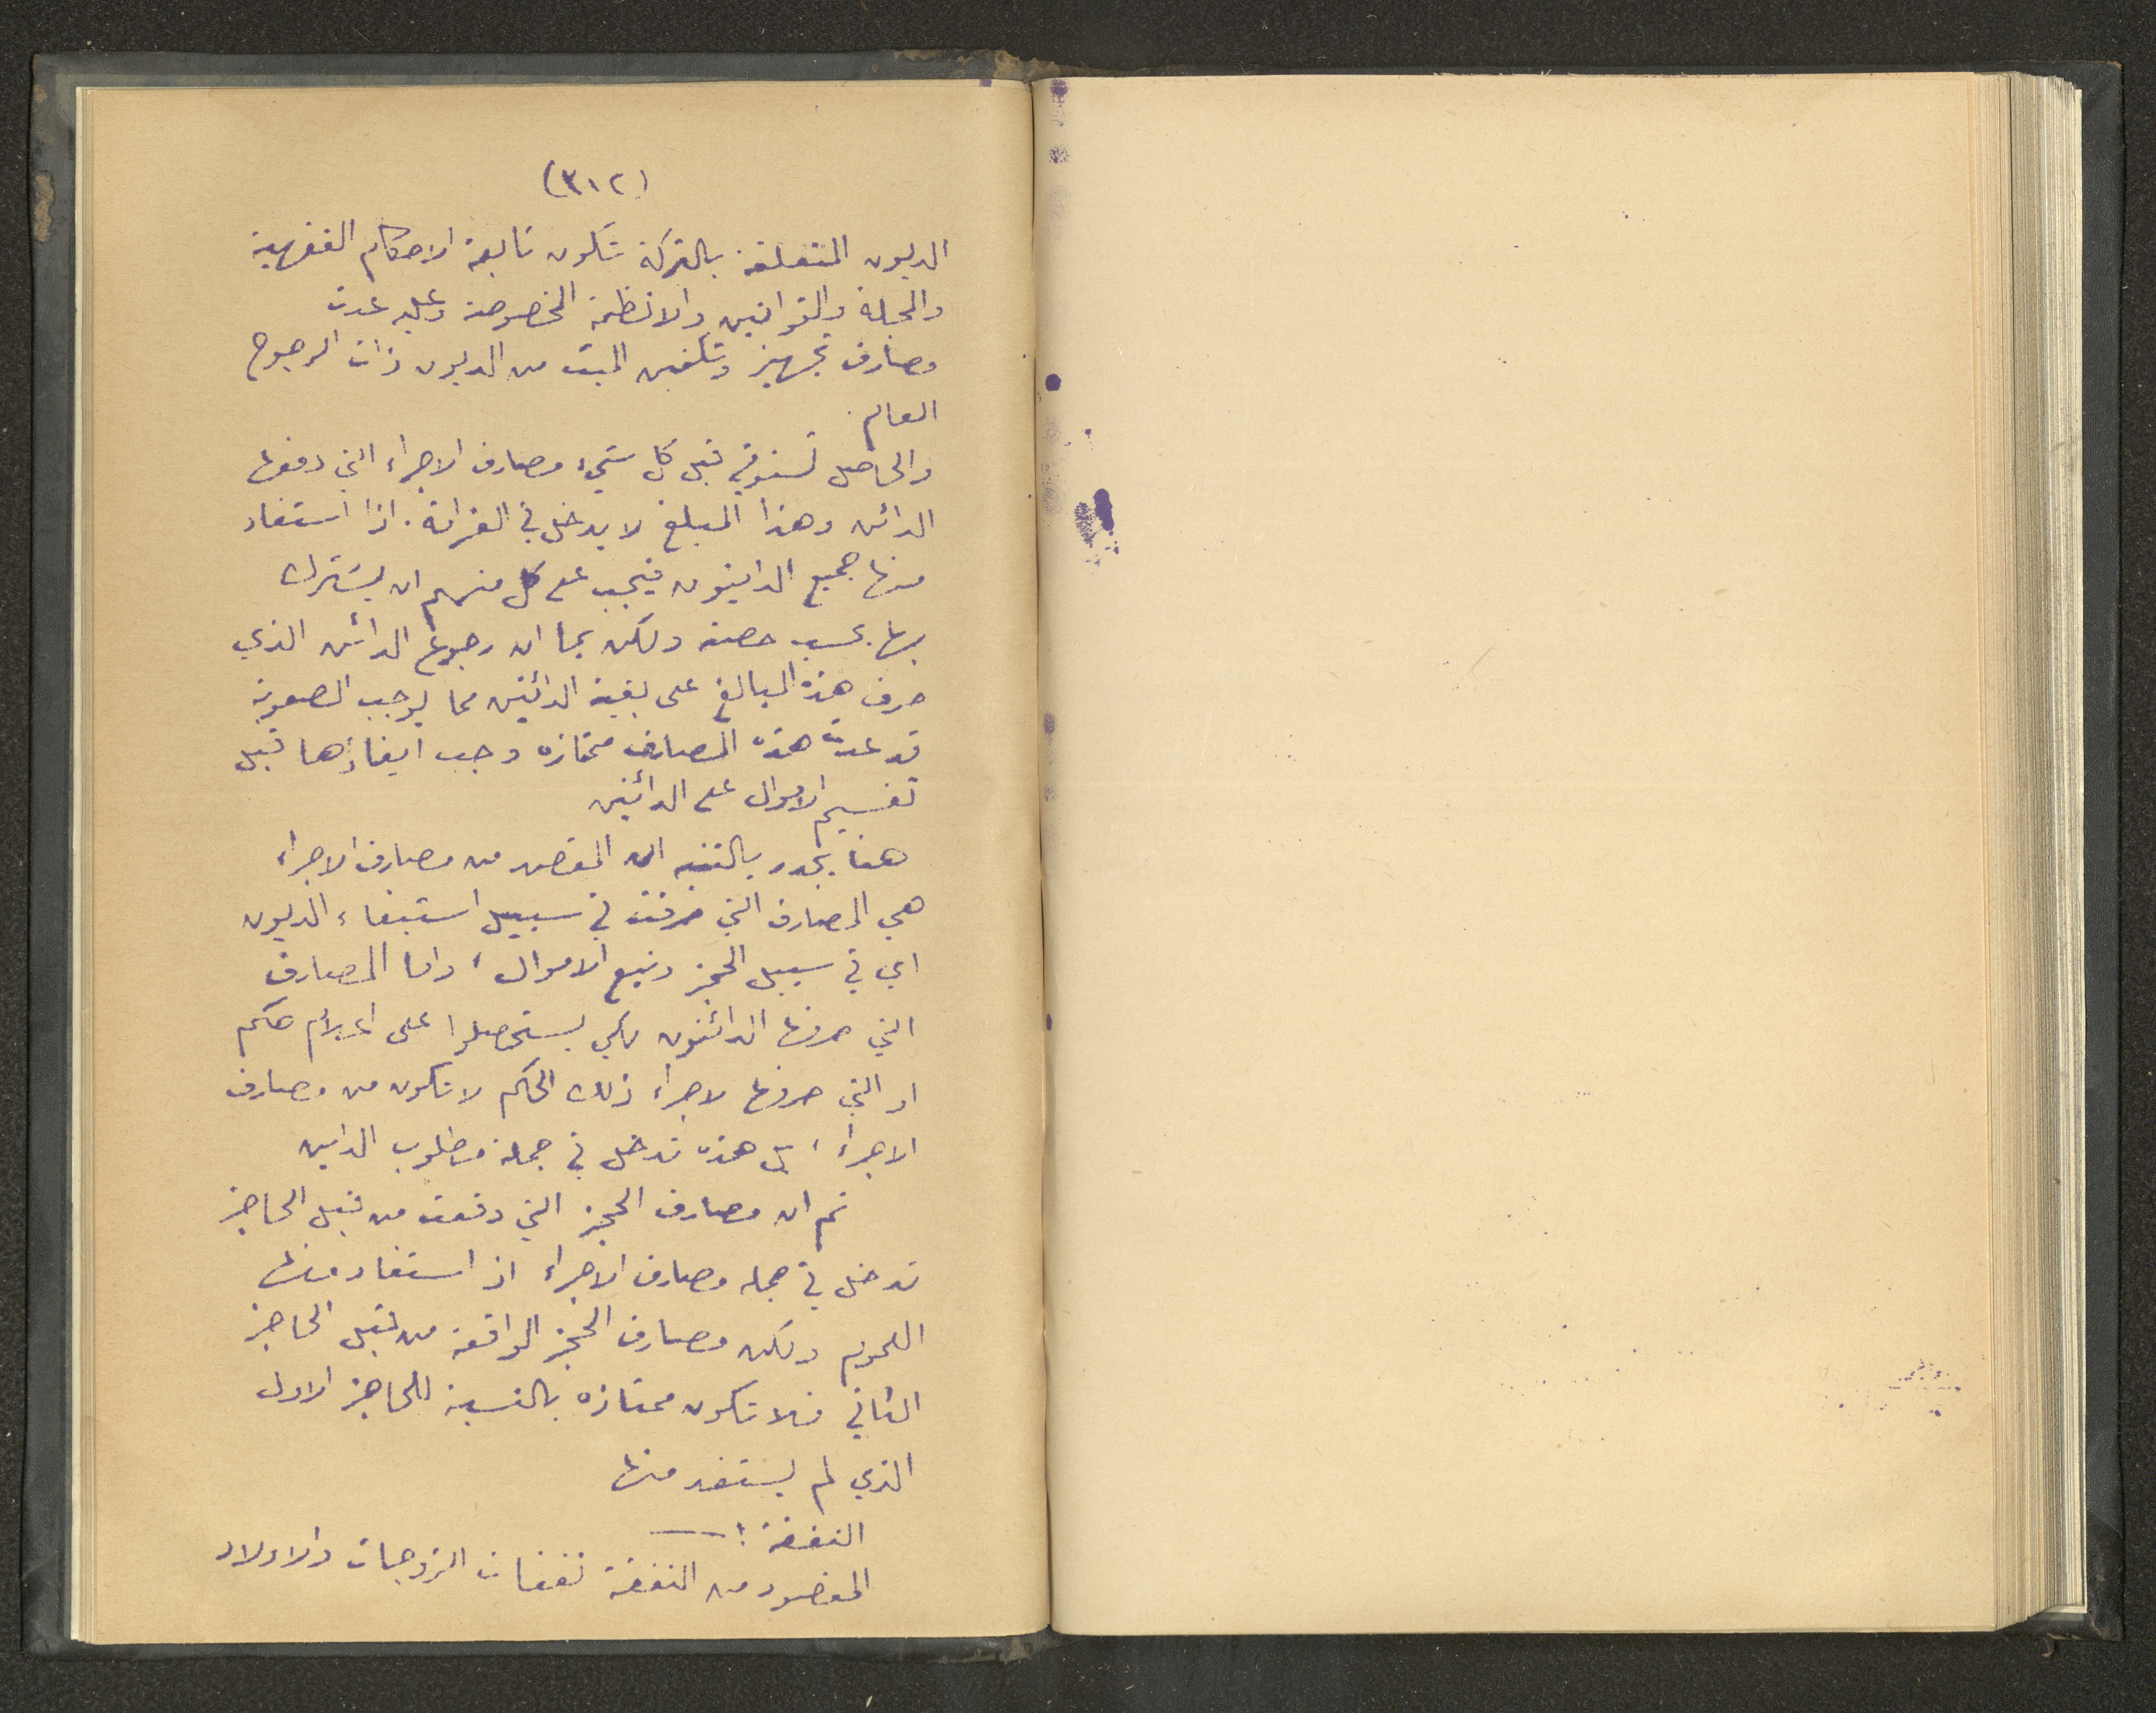 (٣١٢)
الديون المتعلقة بالتركة تكون تابعة الاحكام الفقهية
والمجلة والقوانين والانظمة المخصوصة وعليه عدت
مصارف تجهيز وتكفين الميت من الديون ذات الرجوح
العام.
والحاصل تستوفى قبل كل شيء مصارف الاجراء التي دفعها
الدائن وهذا المبلغ لا يدخل في الغرامة. اذا استفاد
منها جميع الداينون فيجب على كل منهم ان يشترك
بها بحسب حصته ولكن بما ان رجوع الدائن الذي
صرف هذه المبالغ على بقية الدائنين مما يوجب الصعوبة
قد عدت هذه المصارف ممتازه وجب ايفاؤها قبل
تقسيم الاموال على الدائنين
هنا يجدر بالتنبه ان المقصد من مصارف الاجراء
هي المصارف التي صرفت في سبيل استيفاء الديون
اي في سبيل الحجز وبيع الاموال، واما المصارف
التي صرفها الدائنون لكي يستحصلوا على اعلام حكم
او التي صرفها لاجراء ذلك الحكم لا تكون من مصارف
الاجراء، بل هذه تدخل في جملة مطلوب الداين
ثم ان مصارف الحجز التي دفعت من قبل الحاجز
تدخل في جمله مصارف الاجراء اذ استفاد منها
العموم ولكن مصارف الحجز الواقعة من قبل الحاجز
الثاني فلا تكون ممتازه بالنسبة للحاجز الاول
الذي لم يستفد منها
النفقة :ــ
المقصود من النفقة نفقات الزوجات والاولاد